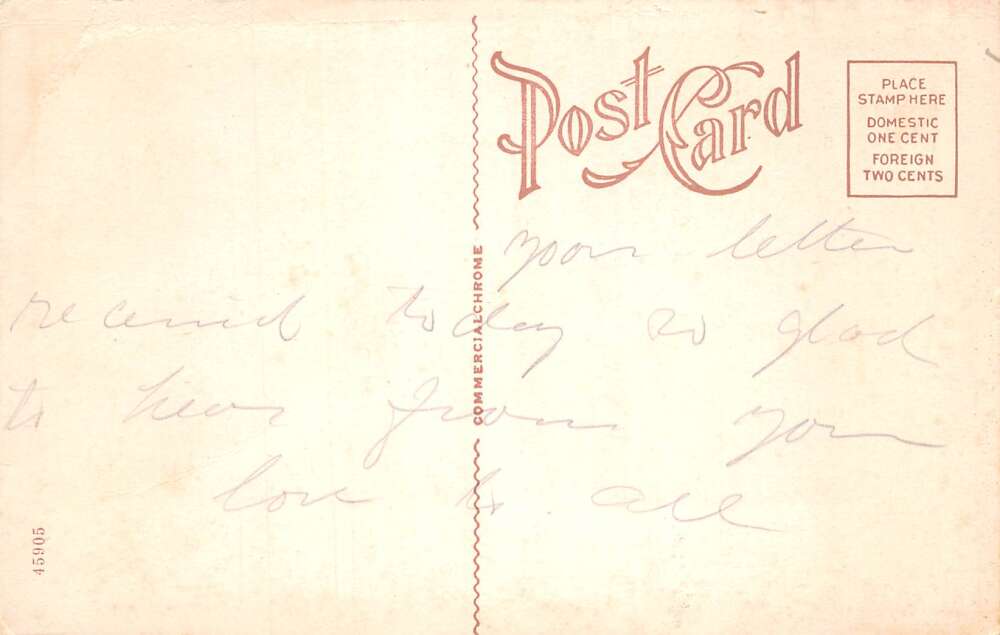 Post Card
PLACE
STAMP HERE
DOMESTIC
ONE CENT
FOREIGN
TWO CENTS
COMMERCIALCHROME
your letter
received today so glad
to hear from you
love to all
45905